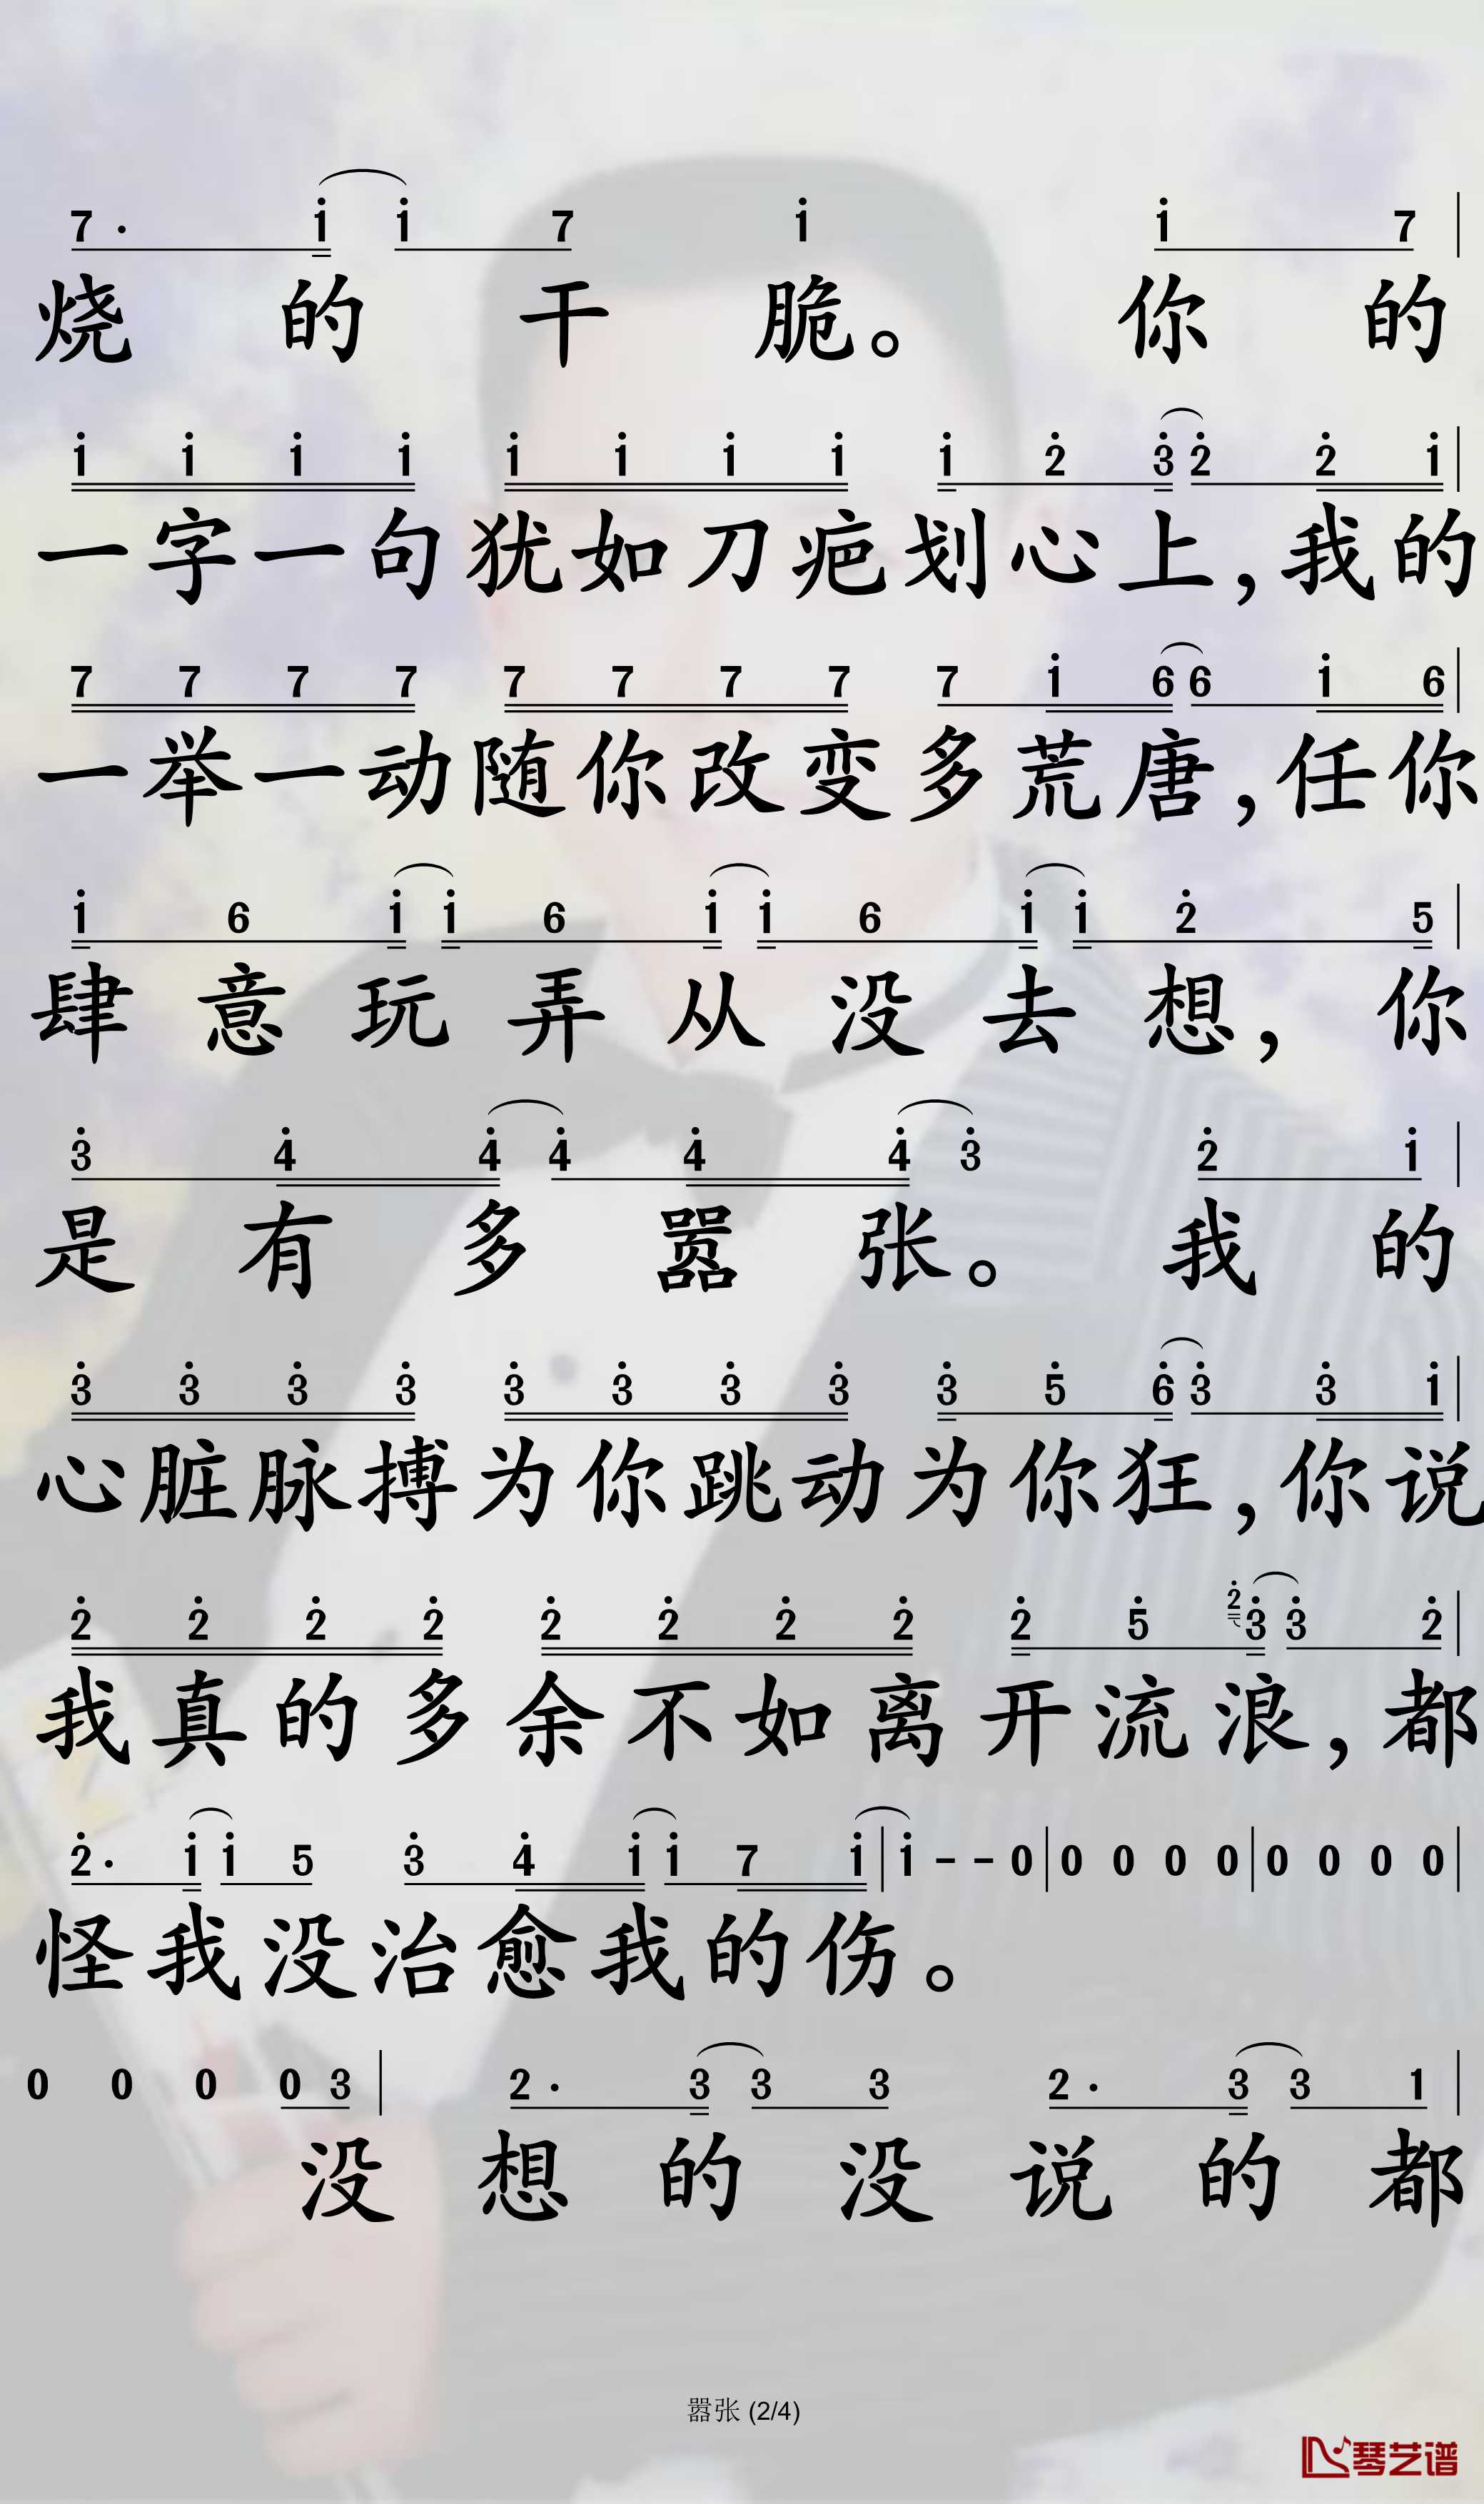 7· i i 7 i i 7
烧的干脆。你的
i i i i i i i i i 2 3 2 2 i
一字一句犹如刀疤划心上,我的
7 7 7 7 7 7 7 7 7 i 6 6 i 6
一举一动随你改变多荒唐,任你
i 6 i i 6 i i 6 i i 2 5
肆意玩弄从没去想,你
3 4 4 4 4 4 3 2 i
是有多嚣张。我的
3 3 3 3 3 3 3 3 3 5 6 3 3 i
心脏脉搏为你跳动为你狂,你说
2 2 2 2 2 2 2 2 2 5 2 3 3 2
我真的多余不如离开流浪,都
2· i i 5 3 4 i i 7 i | i - - 0 | 0 0 0 0 | 0 0 0 0
怪我没治愈我的伤。
0 0 0 0 3 | 2· 3 3 3 2· 3 3 1
没想的没说的都
嚣张 (2/4)
琴艺谱